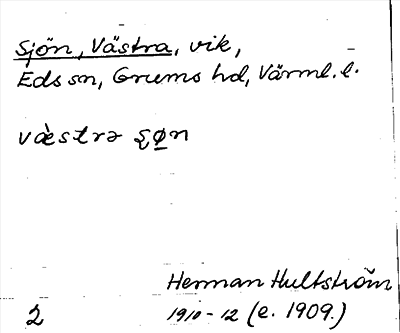 Sjön, Västra, vik,
Eds sn, Grums hd, Värml. l.
væ̀strə ʂø̲n
Herman Hultström
1910-12 (e. 1909.)
2